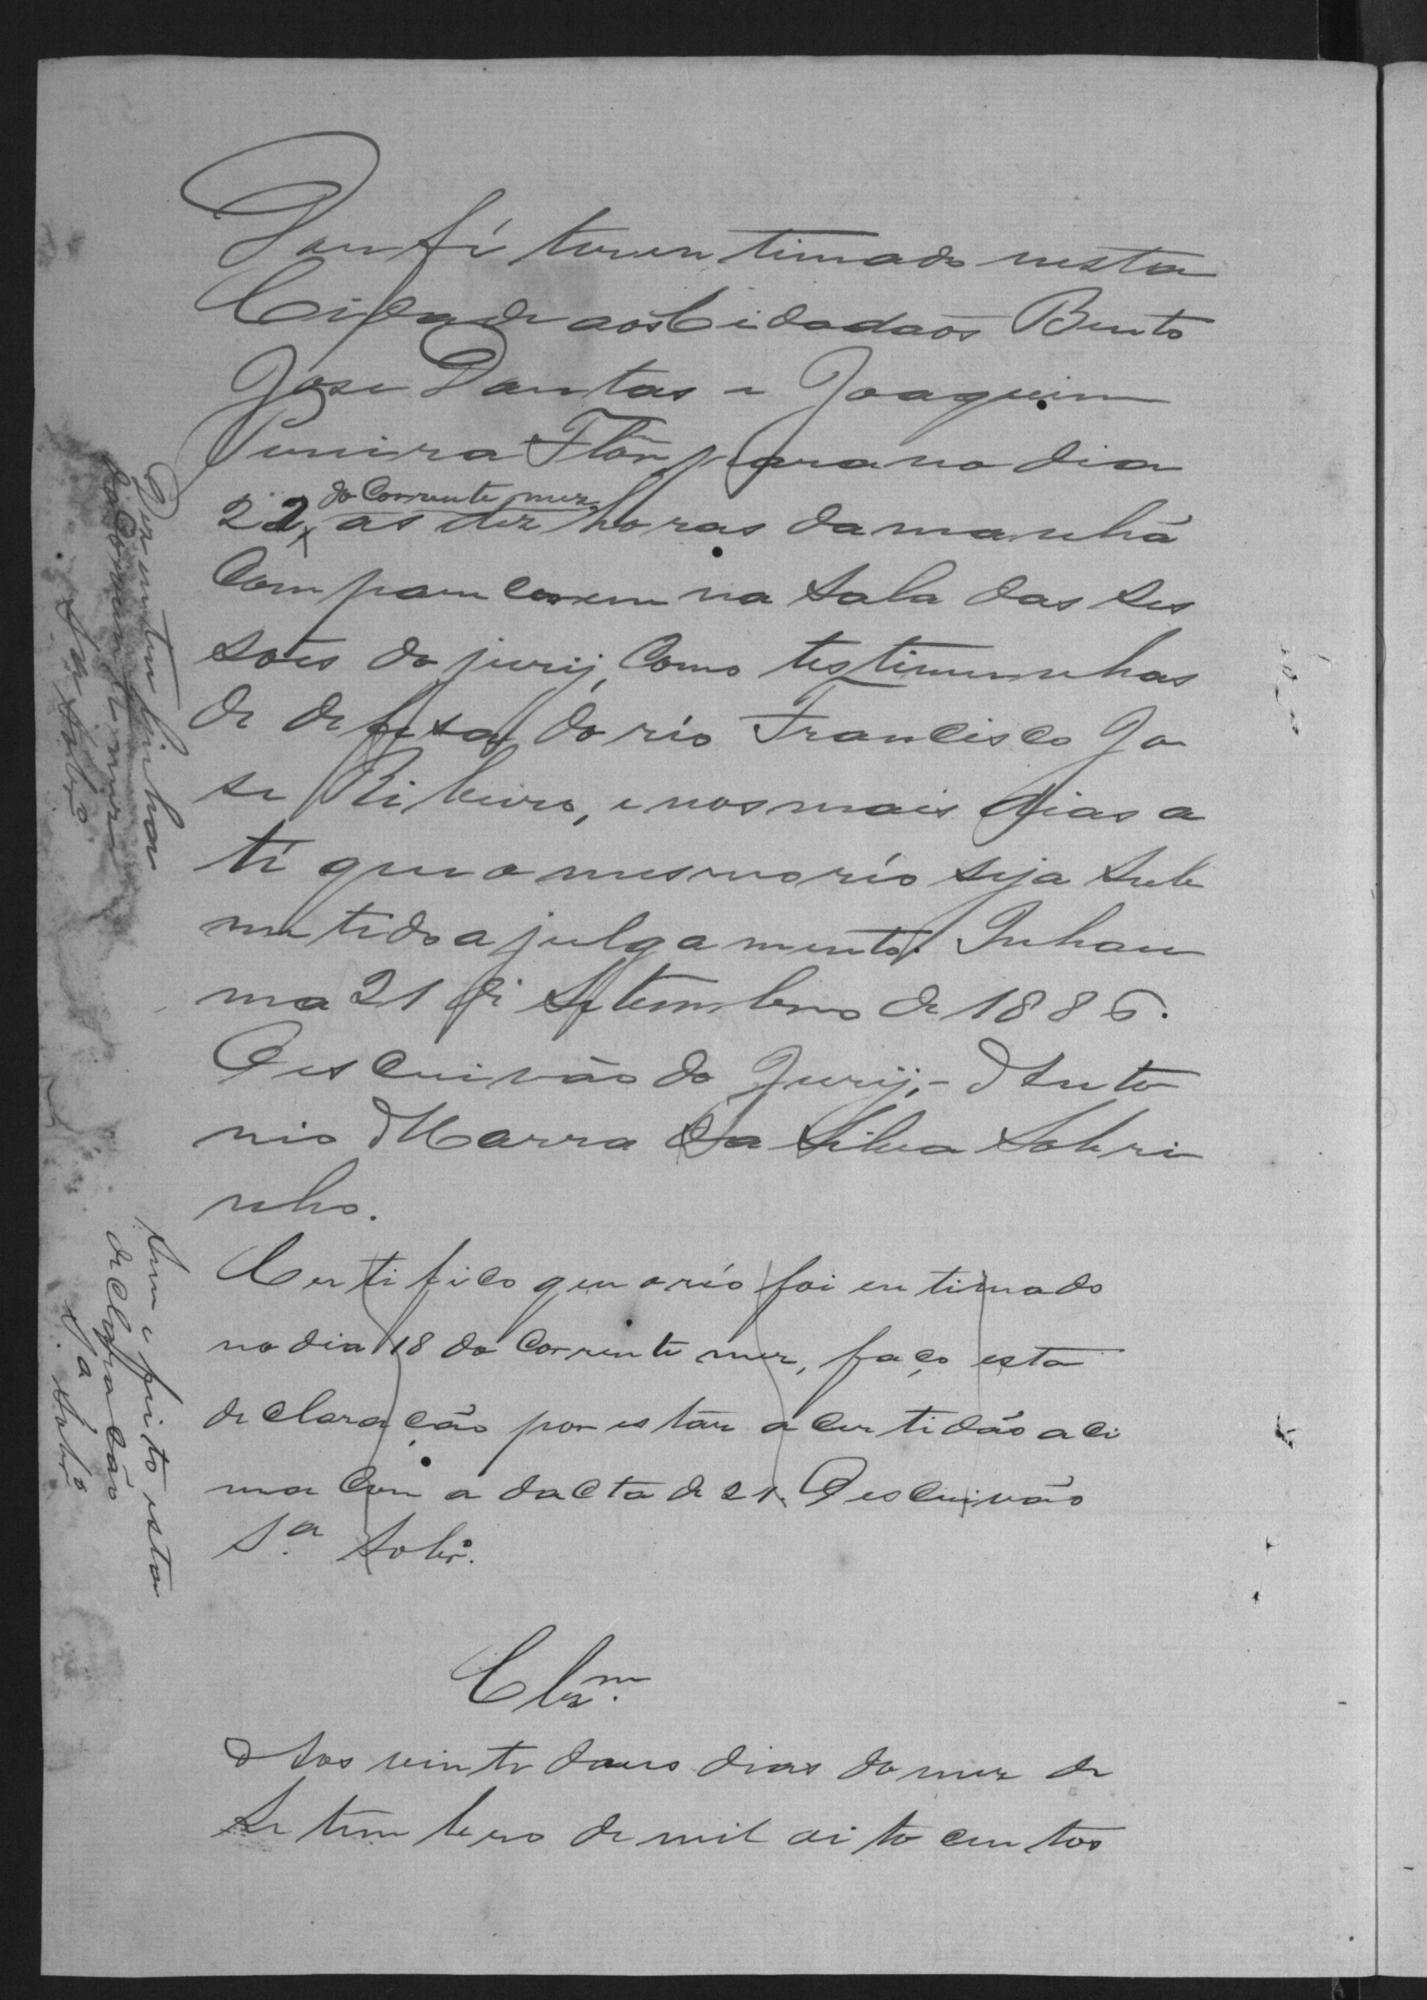 Dou fé ter en timado nesta
Cidade aos Cidadaõs Bento
Jose Dantas e Joaquim
Pereira para no dia
22, do Corrente mez, as dez horas da manhã
Comparecerem na Sala das Ses
soẽs do jury, Como testimunhas
de defesa do réo Francisco Jo
se Ribeiro, e nos mais dias a
té que o mesmo réo seja Sub
metido a julgamento. Inhau
ma 21 de Setembro de 1886.
O escrivão do Jury, - Anto
nio Marra da Silva Sobri
nho.
Certifico que o réo foi en timado
no dia 18 do Corrente mez, faço esta
declaração por estar a Certidão aci
ma Com a dacta de 21. O escrivão
S.ª Sobr.º
Clz.m
Aos vinte dous dias do mez de
Setembro de mil oito centos
Dez entre linhas
do Corrente mez
Sa Sobr.º
declaração
Sª Sobr.º